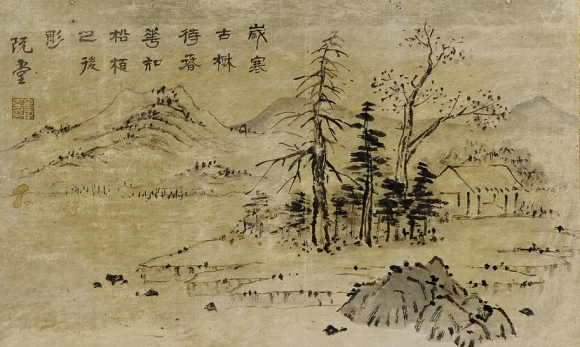 歲寒
古
待春
華知
松栢
之後
彫
阮堂